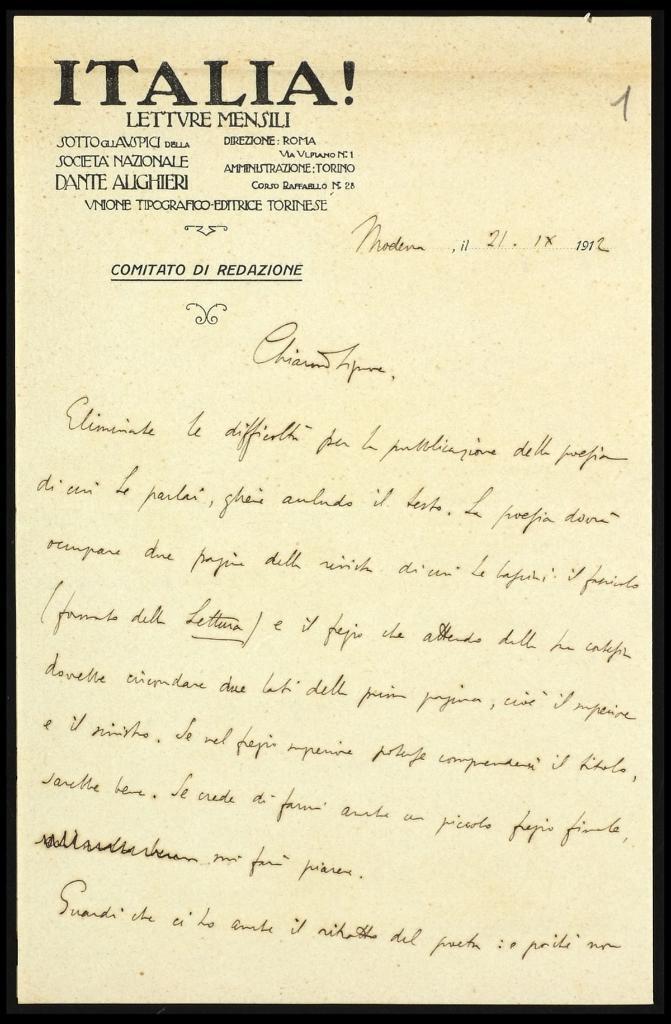 1
ITALIA!
LETTVRE MENSILI
SOTTO GLI AVSPICI DELLA
SOCIETÀ NAZIONALE
DANTE ALIGHIERI
DIREZIONE: ROMA
VIA VLPIANO N. 1
AMMINISTRAZIONE: TORINO
CORSO RAFFAELLO N. 28
VNIONE TIPOGRAFICO-EDITRICE TORINESE
Modena, il 21. IX 1912
COMITATO DI REDAZIONE
Chiarmo Signore,
Eliminate le difficoltà per la pubblicazione della poesia
di cui Le parlai, gliene accludo il testo. La poesia dovrà
occupare due pagine della rivista di cui Le lasciai il fascicolo
(formato della Lettura) e il fregio che attendo dalla sua cortesia
dovrebbe circondare due lati della prima pagina, cioè il superiore
e il sinistro. Se nel fregio superiore potesse comprendersi il titolo,
sarebbe bene. Se crede di farmi anche un piccolo fregio finale,
mi farà piacere.
Guardi che ci ho anche il ritratto del poeta: e poichè non